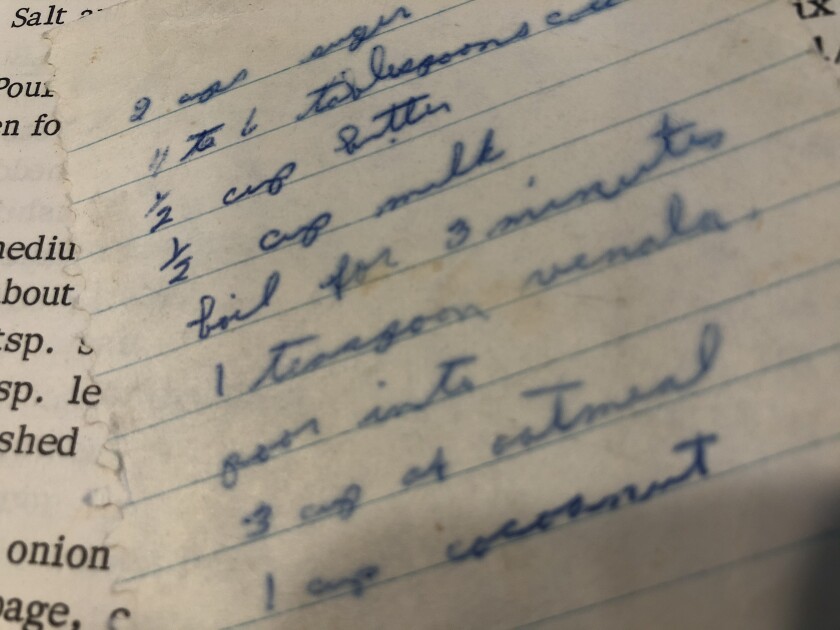 Salt
2 cups suger
4 to 6 tablespoons
1/2 cup butter
1/2 cup milk
boil for 3 minutes
1 teaspoon venala.
poor into
3 cup of oatmeal
1 cup cocoanut
Pour
en fo
mediu
about
tsp. s
sp. le
shed
onion
page, c
ix